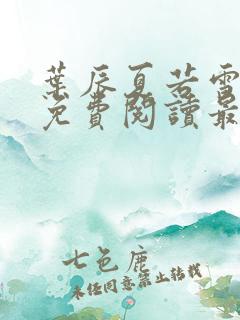 葉辰夏若雪
免費閱讀最
七色鹿
未經同意禁止轉載